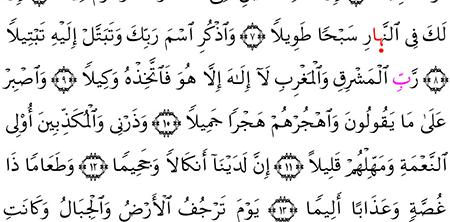 لَكَ فِى ٱلنَّهِارِ سَبْحًا طَوِيلًا ﴿٧﴾ وَٱذْكُرِ ٱسْمَ رَبِّكَ وَتَبَتَّلْ إِلَيْهِ تَبْتِيلًا
﴿٨﴾ رَّبِّ ٱلْمَشْرِقِ وَٱلْمَغْرِبِ لَآ إِلَـٰهَ إِلَّا هُوَ فَٱتَّخِذْهُ وَكِيلًا ﴿٩﴾ وَٱصْبِرْ
عَلَىٰ مَا يَقُولُونَ وَٱهْجُرْهُمْ هَجْرًا جَمِيلًا ﴿١٠﴾ وَذَرْنِى وَٱلْمُكَذِّبِينَ أُو۟لِى
ٱلنَّعْمَةِ وَمَهِّلْهُمْ قَلِيلًا ﴿١١﴾ إِنَّ لَدَيْنَآ أَنكَالًا وَجَحِيمًا ﴿١٢﴾ وَطَعَامًا ذَا
غُصَّةٍ وَعَذَابًا أَلِيمًا ﴿١٣﴾ يَوْمَ تَرْجُفُ ٱلْأَرْضُ وَٱلْجِبَالُ وَكَانَتِ